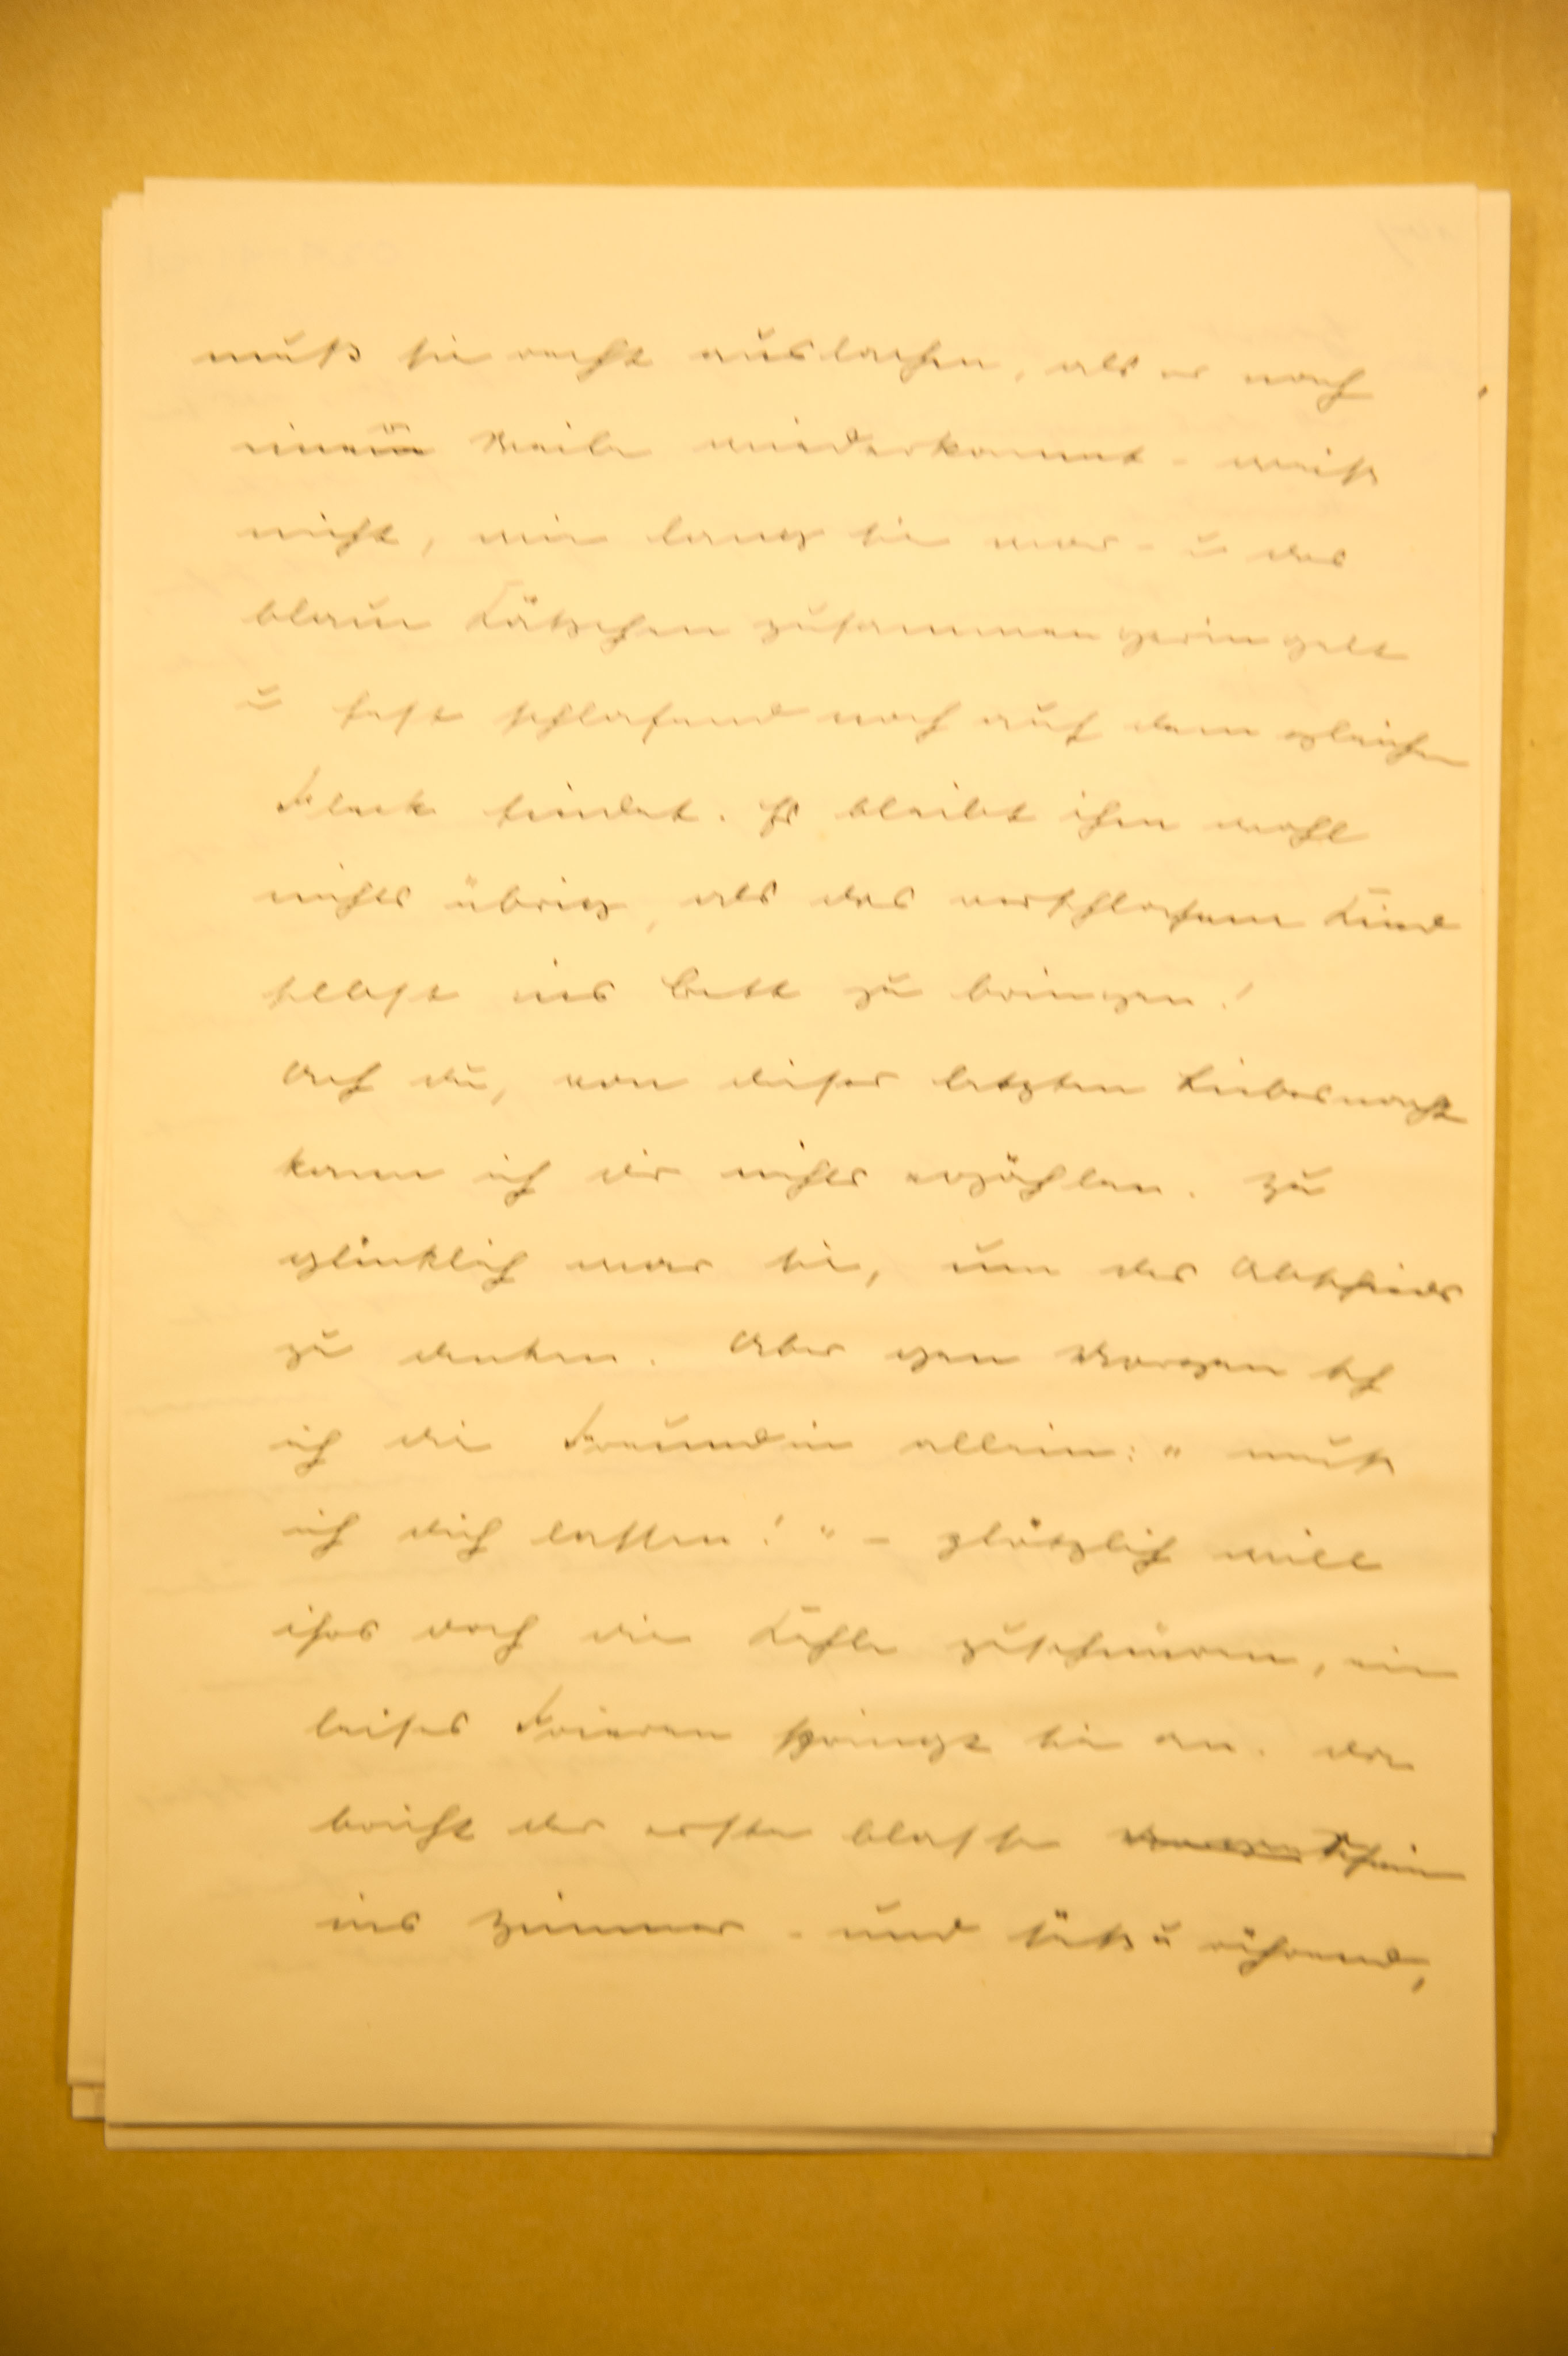 muß sie recht auslachen, als er nach
einer Weile wiederkommt - weiß
nicht, wie lang sie war - u das
blaue Kätzchen zusammengeringelt
u fest schlafend noch auf dem gleichen
Fleck findet. Es bleibt ihm wohl
nichts übrig, als das verschlafene Kind
selbst ins Bett zu bringen!
Ach du, von dieser letzten Liebesnacht
kann ich dir nichts erzählen. Zu
glücklich war sie, um des Abschieds
zu denken. Aber gen Morgen
ich die Freundin allein: " muß
ich dich lassen! " - plötzlich will
ihr doch die Kehle zuschnüren, ein
leises Frieren springt sie an. da
bricht der erste blasse Schein
ins Zimmer - und süß u rührend,